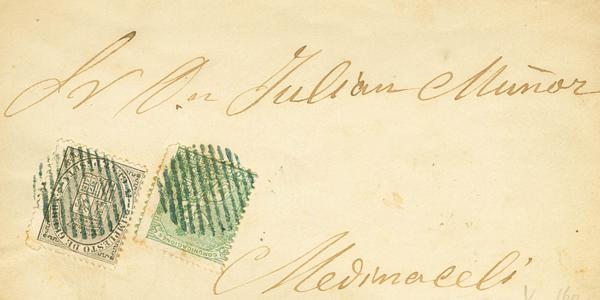 Sr Dn Julian Muñoz
IMPUESTO DE GUERRA
COMUNICACIONES
Medinaceli